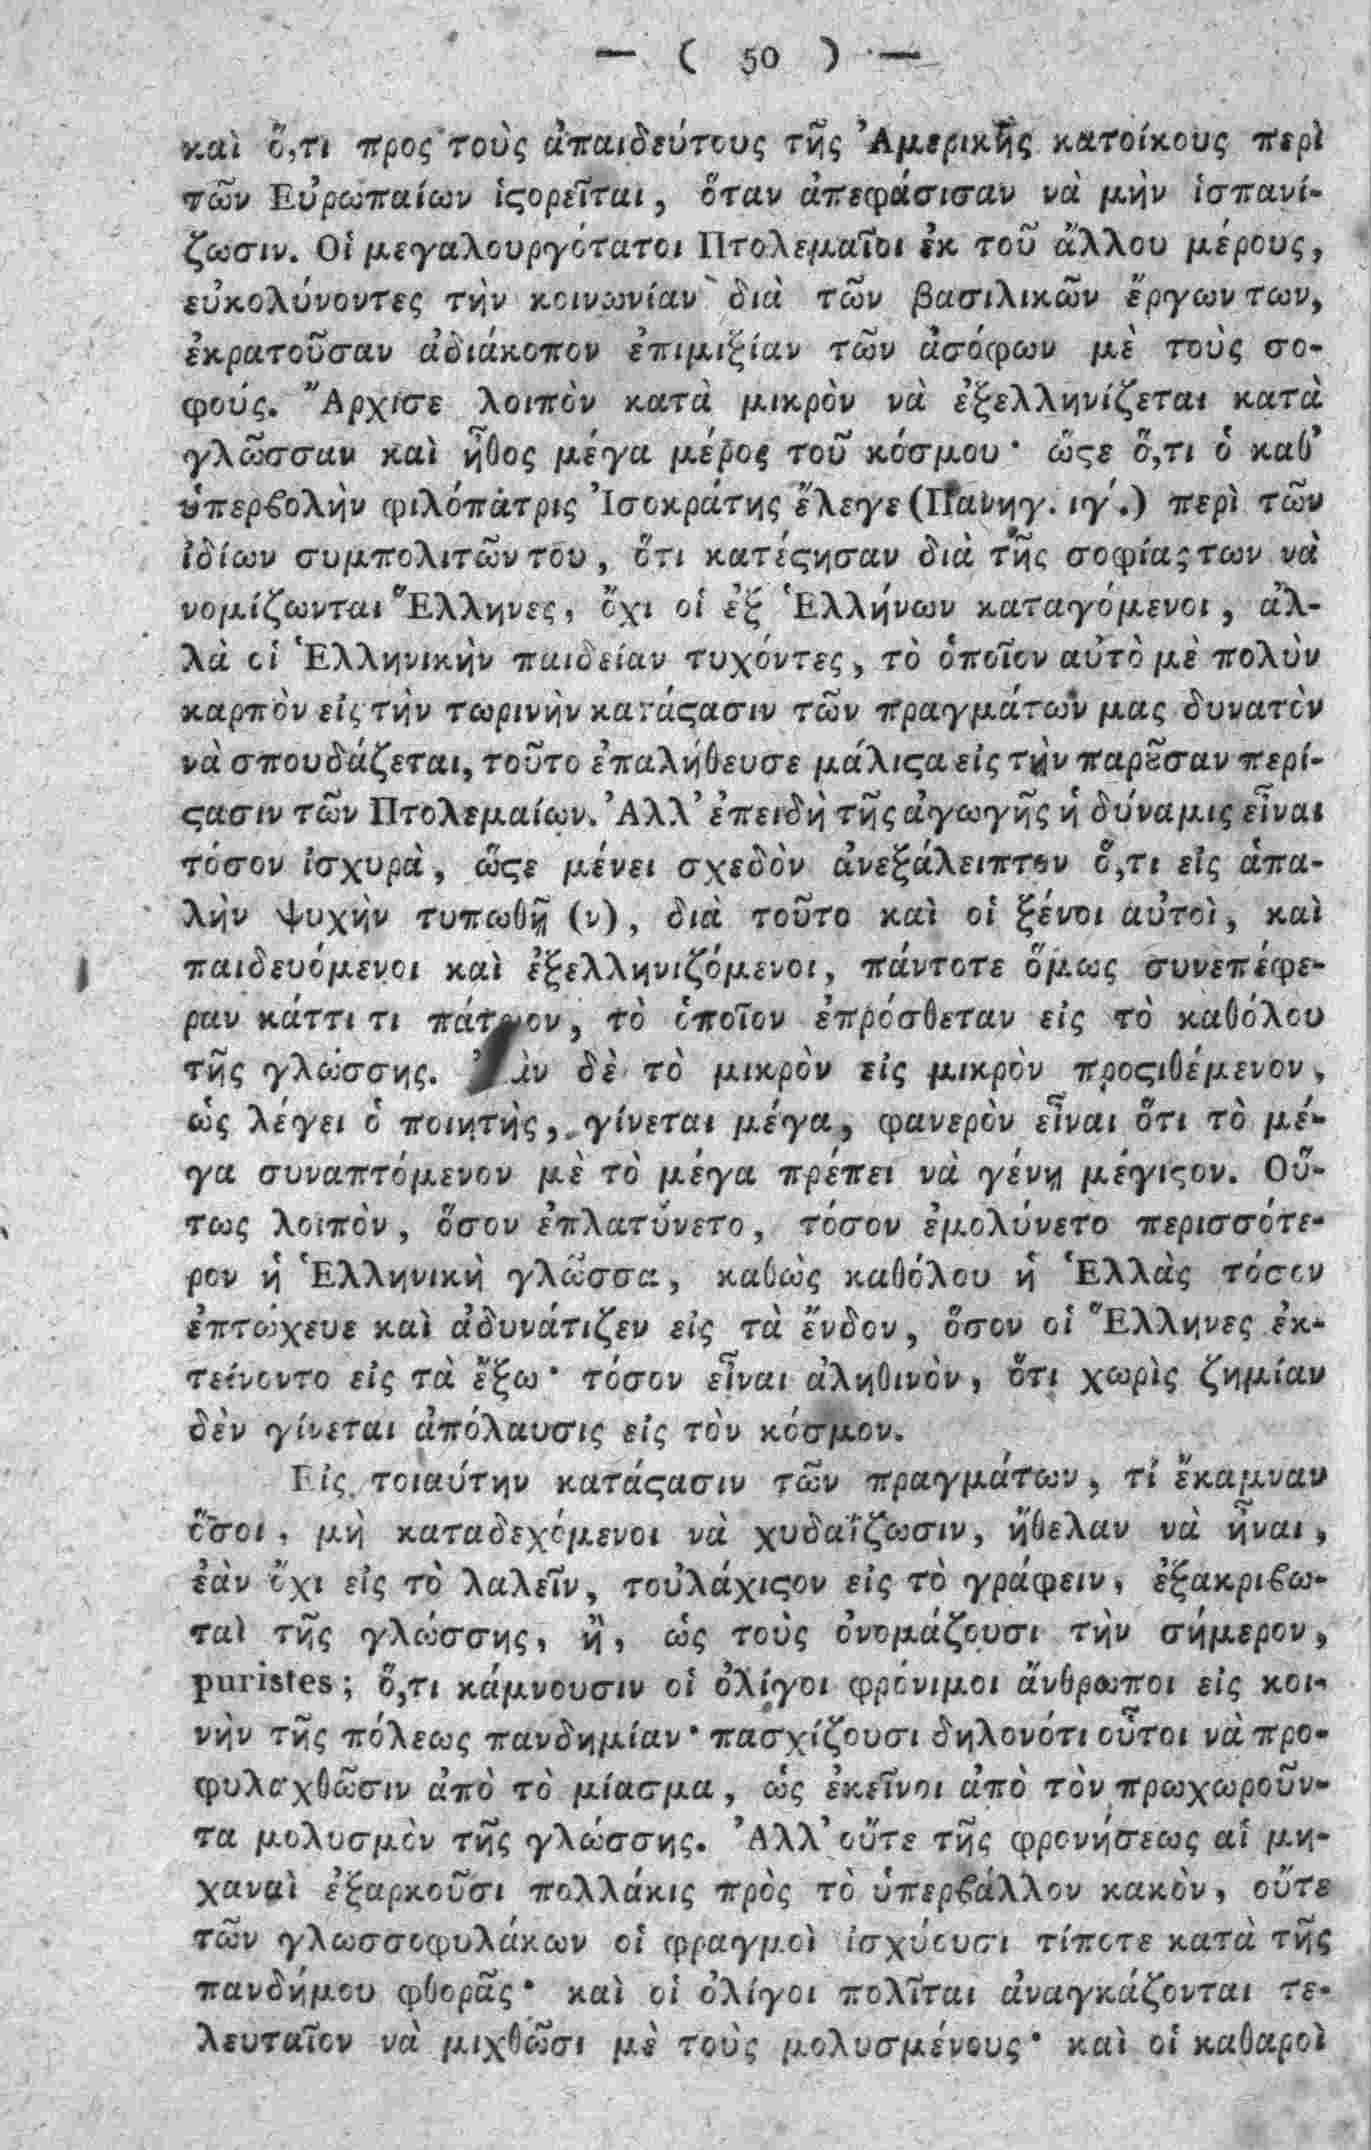 — ( 50 ) —
καὶ ὅ,τι προς τοὺς ἀπαιδεύτους τῆς Ἀμερικῆς κατοίκους περὶ
τῶν Εὐρωπαίων ἱϛορεῖται, ὅταν ἀπεφάσισαν νὰ μὴν ἱσπανί-
ζωσιν. Οἱ μεγαλουργότατοι Πτολεμαῖοι ἐκ τοῦ ἄλλου μέρους,
εὐκολύνοντες τὴν κοινωνίαν διὰ τῶν βασιλικῶν ἔργων των,
ἐκρατοῦσαν ἀδιάκοπον ἐπιμιξίαν τῶν ἀσόφων μὲ τοὺς σο-
φούς. Ἄρχισε λοιπὸν κατὰ μικρὸν νὰ ἐξελληνίζεται κατὰ
γλῶσσαν καὶ ἦθος μέγα μέρος τοῦ κόσμου· ὥϛε ὅ,τι ὁ καθ'
ὑπερϐολὴν φιλόπατρις Ἰσοκράτης ἔλεγε (Πανηγ. ιγ΄.) περὶ τῶν
ἰδίων συμπολιτῶν του, ὅτι κατέϛησαν διὰ τῆς σοφίας των νὰ
νομίζωνται Ἕλληνες, ὄχι οἱ ἐξ Ἑλλήνων καταγόμενοι, ἀλ-
λὰ οἱ Ἑλληνικὴν παιδείαν τυχόντες, τὸ ὁποῖον αὐτὸ μὲ πολὺν
καρπὸν εἰς τὴν τωρινὴν κατάϛασιν τῶν πραγμάτων μας δυνατὸν
νὰ σπουδάζεται, τοῦτο ἐπαλήθευσε μάλιϛα εἰς τὴν παρȣ͂σαν περί-
ϛασιν τῶν Πτολεμαίων. Ἀλλ' ἐπειδὴ τῆς ἀγωγῆς ἡ δύναμις εἶναι
τόσον ἰσχυρὰ, ὥϛε μένει σχεδὸν ἀνεξάλειπτον ὅ,τι εἰς ἁπα-
λὴν ψυχὴν τυπωθῇ (ν), διὰ τοῦτο καὶ οἱ ξένοι αὐτοὶ, καὶ
παιδευόμενοι καὶ ἐξελληνιζόμενοι, πάντοτε ὅμως συνεπέφε-
ραν κάττι τι πάτριον, τὸ ὁποῖον ἐπρόσθεταν εἰς τὸ καθόλου
τῆς γλώσσης. Ἂν δὲ τὸ μικρὸν εἰς μικρὸν προϛιθέμενον,
ὡς λέγει ὁ ποιητὴς, γίνεται μέγα, φανερὸν εἶναι ὅτι τὸ μέ-
γα συναπτόμενον μὲ τὸ μέγα πρέπει νὰ γένῃ μέγιϛον. Οὕ-
τως λοιπὸν, ὅσον ἐπλατύνετο, τόσον ἐμολύνετο περισσότε-
ρον ἡ Ἑλληνικὴ γλῶσσα, καθὼς καθόλου ἡ Ἑλλὰς τόσον
ἐπτώχευε καὶ ἀδυνάτιζεν εἰς τὰ ἔνδον, ὅσον οἱ Ἕλληνες ἐκ-
τείνοντο εἰς τὰ ἔξω· τόσον εἶναι ἀληθινὸν, ὅτι χωρὶς ζημίαν
δὲν γίνεται ἀπόλαυσις εἰς τὸν κόσμον.
Εἰς τοιαύτην κατάϛασιν τῶν πραγμάτων, τί ἔκαμναν
ὅσοι, μὴ καταδεχόμενοι νὰ χυδαΐζωσιν, ἤθελαν νὰ ἦναι,
ἐὰν ὄχι εἰς τὸ λαλεῖν, τοὐλάχιϛον εἰς τὸ γράφειν, ἐξακριϐω-
ταὶ τῆς γλώσσης, ἢ, ὡς τοὺς ὀνομάζουσι τὴν σήμερον,
puristes; ὅ,τι κάμνουσιν οἱ ὀλίγοι φρόνιμοι ἄνθρωποι εἰς κοι-
νὴν τῆς πόλεως πανδημίαν· πασχίζουσι δηλονότι οὗτοι νὰ προ-
φυλαχθῶσιν ἀπὸ τὸ μίασμα, ὡς ἐκεῖνοι ἀπὸ τὸν πρωχωροῦν-
τα μολυσμὸν τῆς γλώσσης. Ἀλλ' οὔτε τῆς φρονήσεως αἱ μη-
χαναὶ ἐξαρκοῦσι πολλάκις πρὸς τὸ ὑπερϐάλλον κακὸν, οὔτε
τῶν γλωσσοφυλάκων οἱ φραγμοὶ ἰσχύουσι τίποτε κατὰ τῆς
πανδήμου φθορᾶς· καὶ οἱ ὀλίγοι πολῖται ἀναγκάζονται τε-
λευταῖον νὰ μιχθῶσι μὲ τοὺς μολυσμένους· καὶ οἱ καθαροὶ